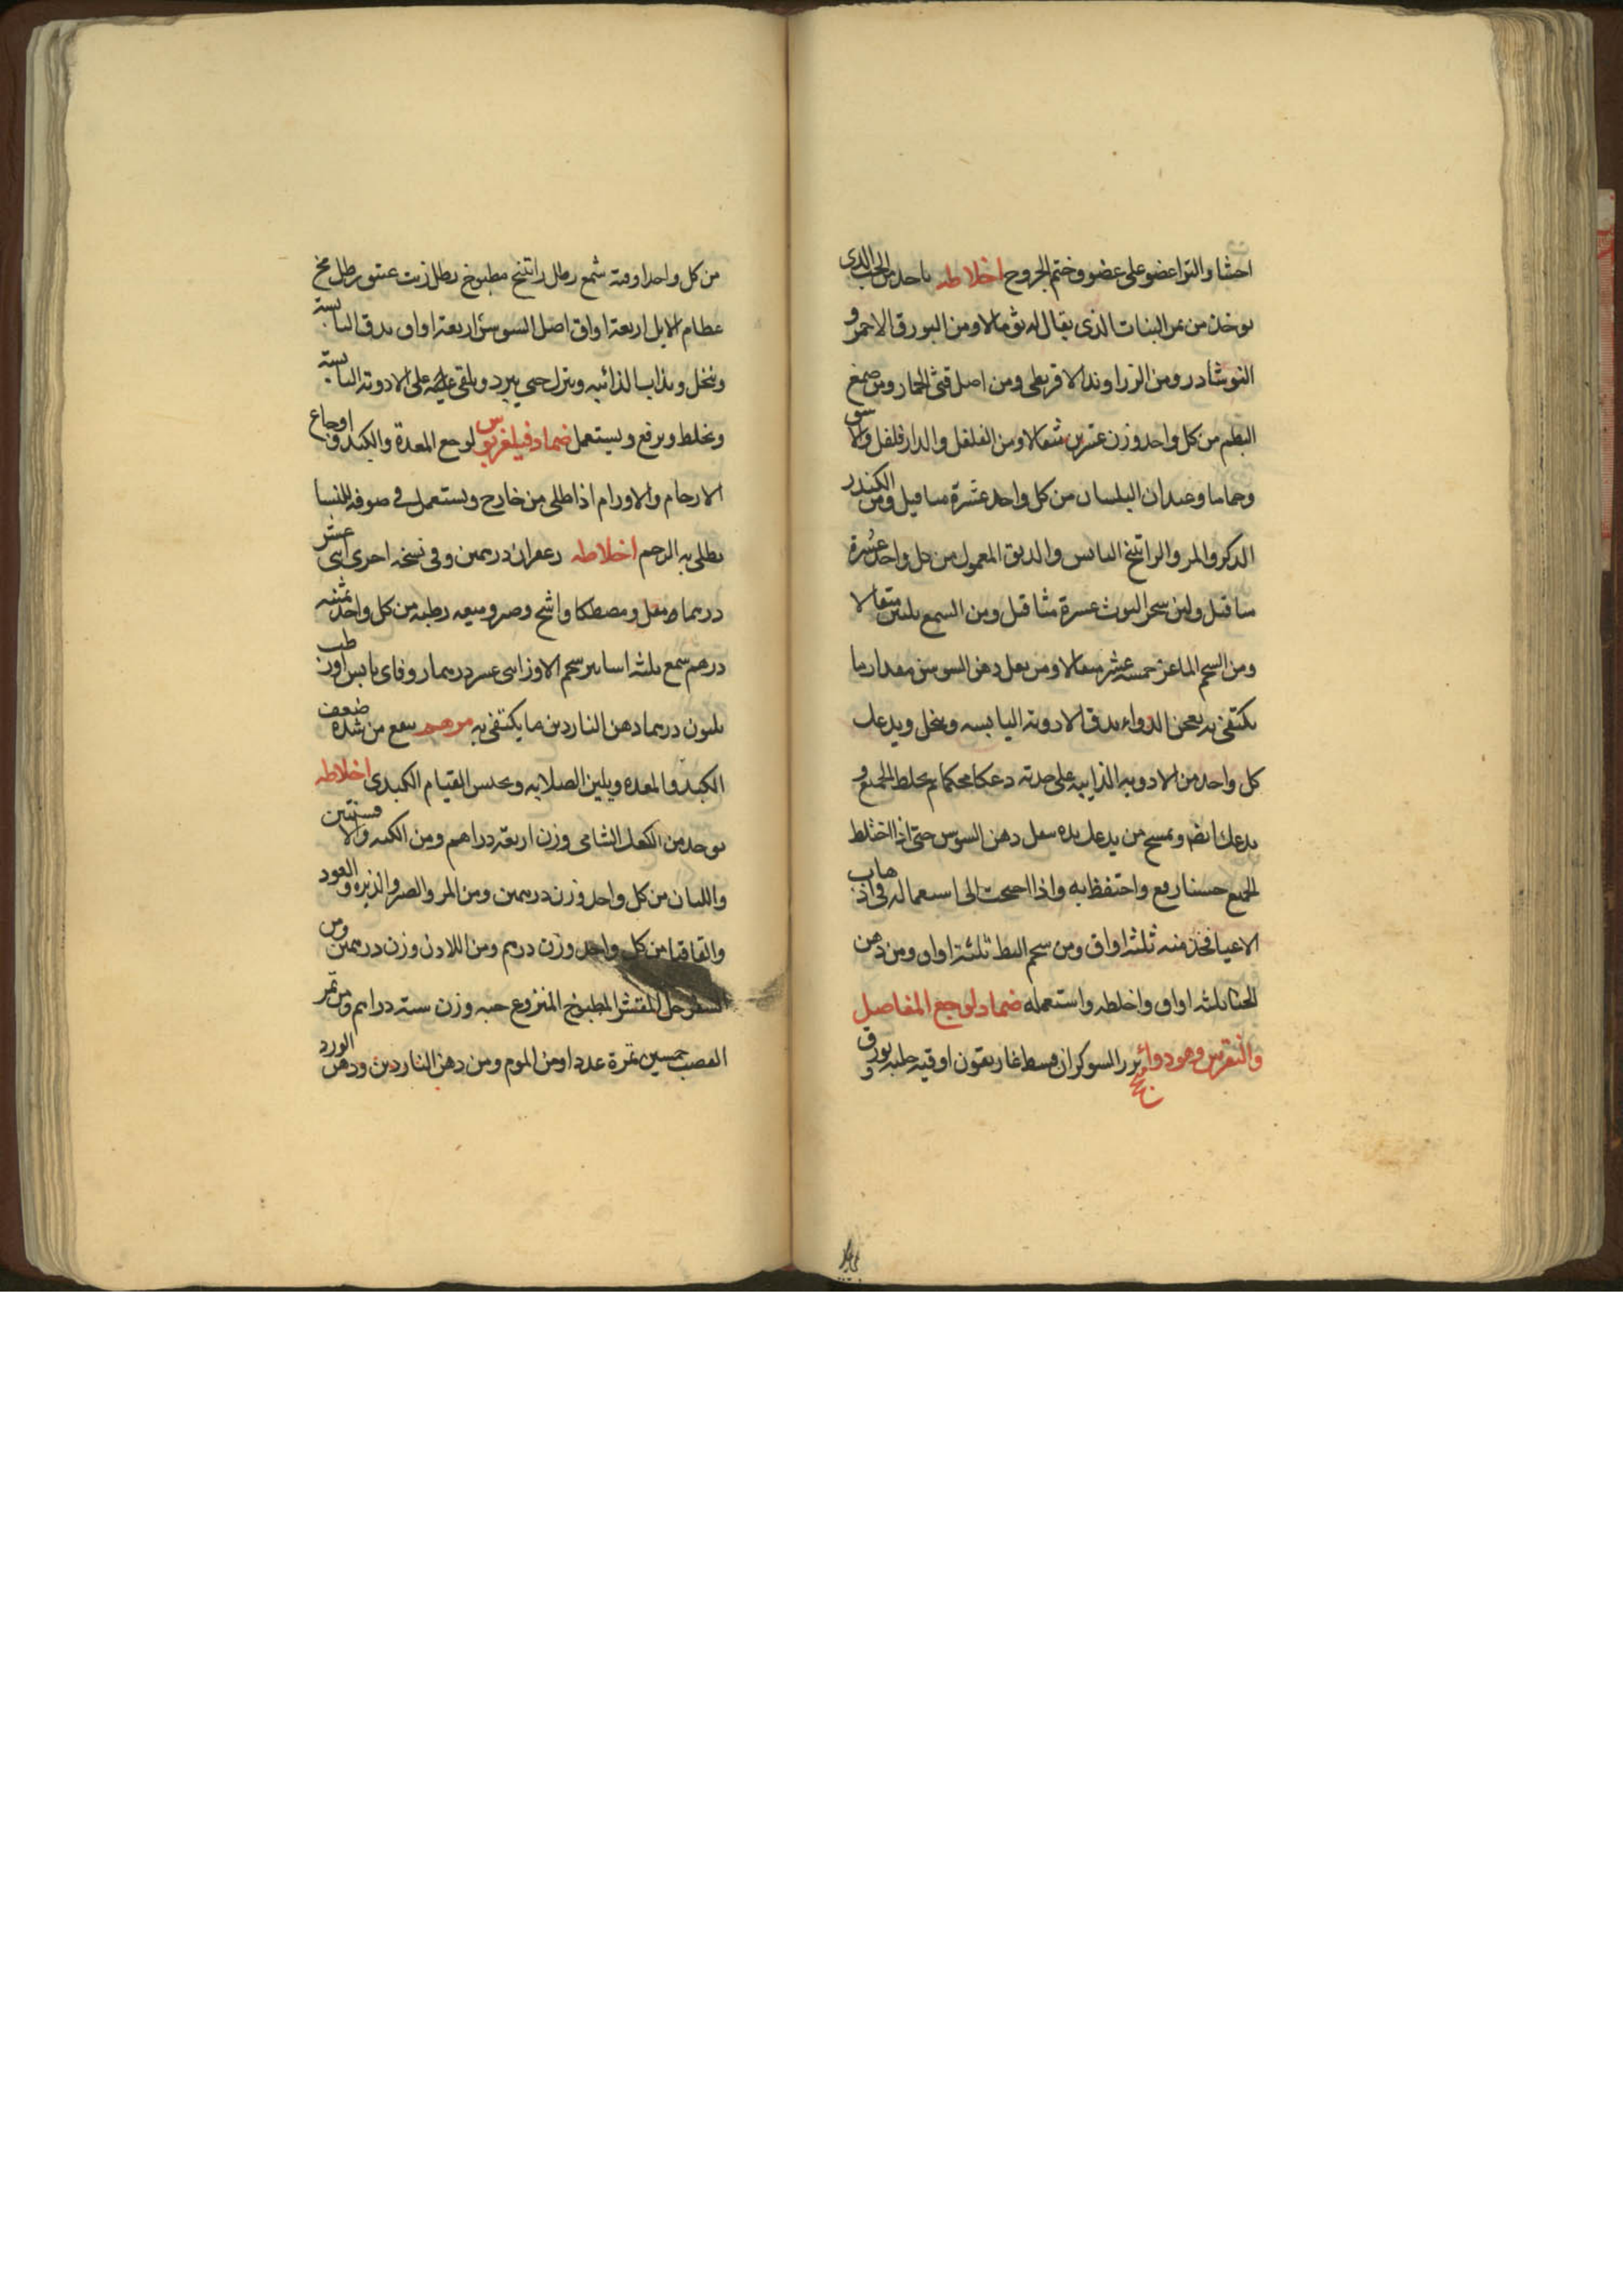 احشا والتزا عضو على عضو وختم الجروح اخلاطه ياخد من الحب الدى
يوخذ من ثمر النبات الذى يقال له ثومالا ومن البورق الاحمر و
النوشادر ومن الزراوند الاقريطى ومن اصل قثى الحمار ومن صمغ
البطم من كل واحد وزن عشرين مثقالا ومن الفلفل والدارفلفل والاسق
وحماما وعيدان البلسان من كل واحد عشرة مثاقيل ومن الكندر
الدكر والمر والراتينج اليابس والدبق المعمول من كل واحد عشرة
مثاقيل ولبن شجر التوث عشرة مثاقيل ومن الشمع ثلثين مثقالا
ومن الشحم الماعز خمسة عشر مثقالا ومن ثفل دهن السوسن مقدار ما
يكتفى به يعجن الدواء يدق الادوية اليابسه وينخل ويدعك
كل واحد من الادويه الذايبه على حدته دعكا محكما ثم يخلط الجميع و
يدعك ايضا ويمسح من يدعك يده بثفل دهن السوسن حتى اذا اختلط
الجميع حسنا رفع واحتفظ به واذا احتجت الى استعماله فى اذهاب
الاعيا فخذ منه ثلثة اواق ومن شحم البط ثلثة اواق ومن دهن
الحنا ثلثه اواق واخلطه واستعمله ضماد لوجع المفاصل
والنقرس وهو دواء بزر السوكران قسط غاريقون اوقيه حلبه بورق و
من كل واحد اوقية شمع رطل راتينج مطبوخ رطل زيت عتيق رطل مخ
عظام الايل اربعة اواق اصل السوسن اربعة اواق يدق اليابسة
وينخل ويذاب الذائبه ويترك حتى يبرد ويلقى عليه على الادوية اليابسة
ويخلط ويرفع ويستعمل ضماد فيلغريوس لوجع المعدة والكبد و اوجاع
الارحام والاورام اذا طلى من خارج ويستعمل فى صوفه للنسا
يطلى به الرحم اخلاطه زعفران درهمين وفى نسخه اخرى اثنى عشر
درهما مقل ومصطكا واشج وصبر وميعه رطبه من كل واحد
درهم شمع ثلثه اساتير شحم الاوز اثنى عشر درهما زوفاى يابس او رطب
ثلثون درهما دهن الناردين ما يكتفى به مرهم ينفع من شدة ضعف
الكبد والمعده ويلين الصلابه ويحبس القيام الكبدى اخلاطه
يوخذ من الكعك الشامى وزن اربعة دراهم ومن الكيه والافسنتين
واللبان من كل واحد وزن درهمين ومن المر والصبر والذيره والعود
والقاقيا من كل واحد وزن درهم ومن اللادن وزن درهمين ومن
السفرجل المقشر المطبوخ المنزوع حبه وزن ستة دراهم ومن تمر
القصب خمسين تمرة عددا ومن الموم ومن دهن الناردين ودهن الورد